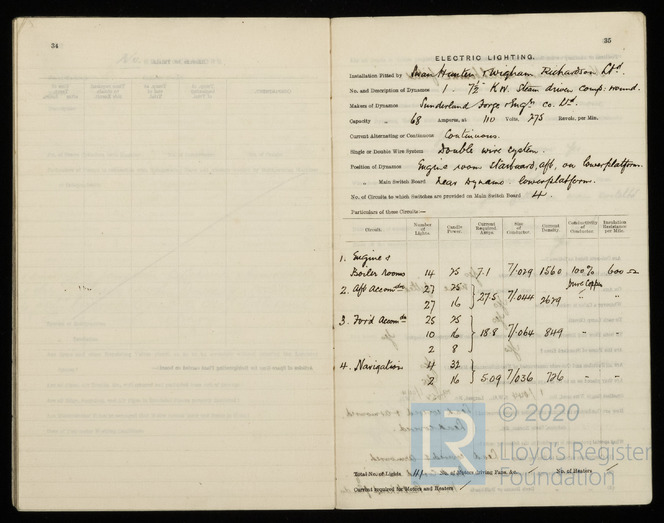 34
35
ELECTRIC LIGHTING.
Installation Fitted by Swan Hunter & Wigham Richardson Ltd.
No. and Description of Dynamos 1 - 7½ K.W. Steam driven comp: wound.
Makers of Dynamos Sunderland Forge & Engg Co. Ltd.
Capacity - 68 Amperes, at 110 Volts, 275 Revols. per Min.
Current Alternating or Continuous Continuous.
Single or Double Wire System Double wire system.
Position of Dynamos Engine room starboard, aft, on lower platform.
Main Switch Board Near Dynamo. lower platform.
No. of Circuits to which Switches are provided on Main Switch Board 4.
Particulars of these Circuits:—
Circuit. Number of Lights. Candle Power. Current Required. Amps. Size of Conductor. Current Density. Conductivity of Conductor. Insulation Resistance per Mile.
1. Engine &
Boiler rooms 14 25 7.1 7/.029 1560 100% 600 Ω
pure Copper
2. Aft Accomdn 27 25
27 16 27.5 7/.044 2629 " "
3. Ford Accomdn 25 25
10 16 18.8 7/.064 849 " "
2 8
4. Navigation 4 32
2 16 5.09 7/036 726 " "
© 2020
LR
Lloyd's Register
Foundation
Total No. of Lights 111 No. of Motors driving Fans, &c. No. of Heaters
Current required for Motors and Heaters